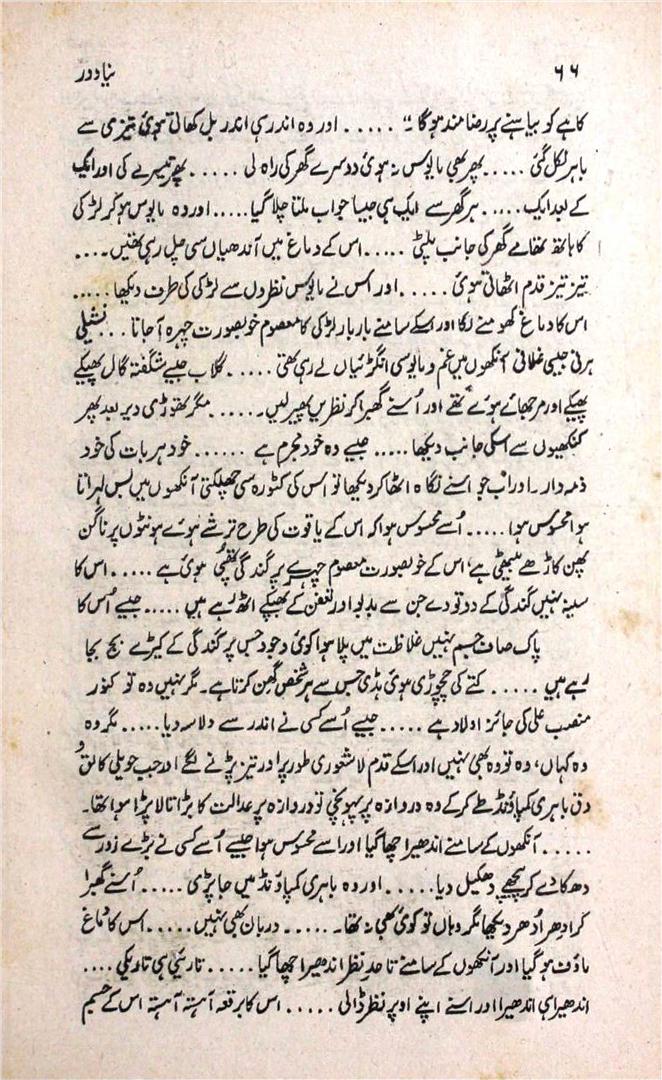 ۶۶
نیا دور
کاہے کو بیاہنے پر رضامند ہوگا۔" ..... اور وہ اندر ہی اندر بل کھاتی ہوئی تیزی سے
باہر نکل گئی ..... پھر بھی مایوس نہ ہوئی دوسرے گھر کی راہ لی ..... پھر تیسرے کی اور ایک
کے بعد ایک ..... ہر گھر سے ایک ہی جیسا جواب ملتا چلا گیا ..... اور وہ مایوس ہو کر لڑکی
کا ہاتھ تھامے گھر کی جانب پلٹی ..... اس کے دماغ میں آندھیاں سی چل رہی تھیں ....
تیز تیز قدم اٹھاتی ہوئی ..... اور اس نے مایوس نظروں سے لڑکی کی طرف دیکھا .....
اس کا دماغ گھومنے لگا اور اسکے سامنے بار بار لڑکی کا معصوم خوبصورت چہرہ آجاتا ... نشیلی
ہرنی جیسی غلافی آنکھوں میں غم و مایوسی انگڑائیاں لے رہی تھی ..... گلاب جیسے شگفتہ گال پھیکے
پھیکے اور مرجھائے ہوئے تھے اور اُسنے گھبرا کر نظریں پھیر لیں ..... مگر تھوڑی دیر بعد پھر
کنکھیوں سے اسکی جانب دیکھا ..... جیسے وہ خود مجرم ہے ...... خود ہر بات کی خود
ذمہ دار۔ اور اب جو اسنے نگاہ اٹھا کر دیکھا تو اس کی کٹورہ سی چھلکتی آنکھوں میں بس لہراتا
ہوا محسوس ہوا ..... اُسے محسوس ہوا کہ اس کے یاقوت کی طرح ترشے ہوئے ہونٹوں پر ناگن
پھن کاڑھے بیٹھی ہے، اس کے خوبصورت معصوم چہرے پر گندگی تھپی ہوئی ہے ..... اس کا
سینہ نہیں گندگی کے دو تودے جن سے بدبو اور تعفن کے بھپکے اٹھ رہے ہیں ..... جیسے اُس کا
پاک صاف جسم نہیں غلاظت میں پلا ہوا کوئی وجود جس پر گندگی کے کیڑے بج بجا
رہے ہیں ..... کتے کی چچوڑی ہوئی ہڈی جس سے ہر شخص گھن کرتا ہے۔ مگر نہیں وہ تو کنور
منصب علی کی جائز اولاد ہے ..... جیسے اُسے کسی نے اندر سے دلاسہ دیا ..... مگر وہ
وہ کہاں، وہ تو وہ بھی نہیں اور اسکے قدم لاشعوری طور پر اور تیز پڑنے لگے اور جب حویلی کا لق و
دق باہری کمپاؤنڈ طے کر کے وہ دروازہ پر پہونچی تو دروازہ پر عدالت کا بڑا تالا پڑا ہوا تھا۔
..... آنکھوں کے سامنے اندھیرا چھا گیا اور اسے محسوس ہوا جیسے اُسے کسی نے بڑے زور سے
دھکا دے کر پیچھے دھکیل دیا ..... اور وہ باہری کمپاؤنڈ میں جا پڑی ..... اُسنے گھبرا
کر ادھر اُدھر دیکھا مگر وہاں تو کوئی بھی نہ تھا۔ ..... دربان بھی نہیں ..... اس کا دماغ
ماؤف ہو گیا اور آنکھوں کے سامنے تا حدِ نظر اندھیرا چھا گیا ..... تاریکی ہی تاریکی ....
اندھیرا ہی اندھیرا اور اسنے اپنے اوپر نظر ڈالی ..... اس کا برقعہ آہستہ آہستہ اس کے جسم